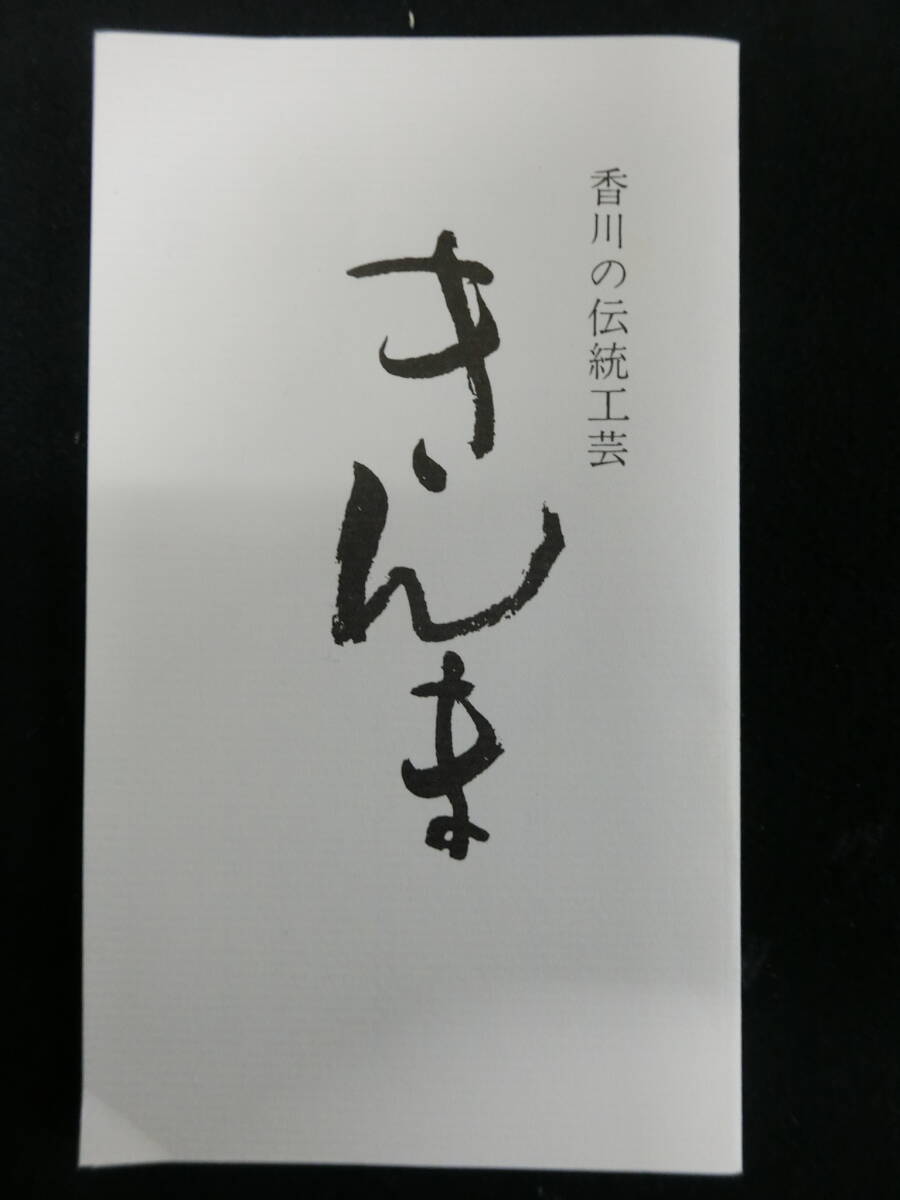 香川の伝統工芸
きんま